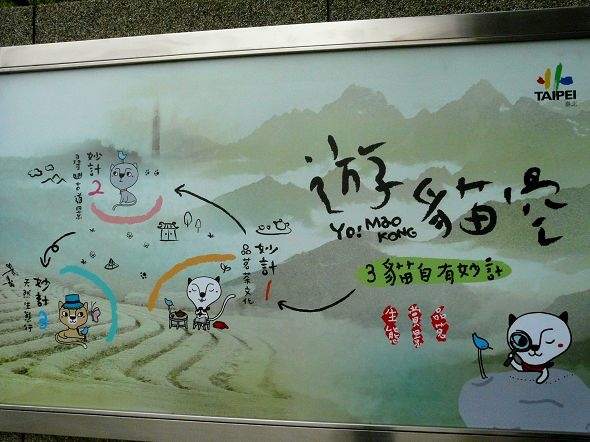 TAIPEI
臺北
遊貓空
Yo! Mao
KONG
3貓自有妙計
生態
賞景
品茗
妙計1
品茗茶文化
妙計2
尋幽古道景
妙計3
天然生態行